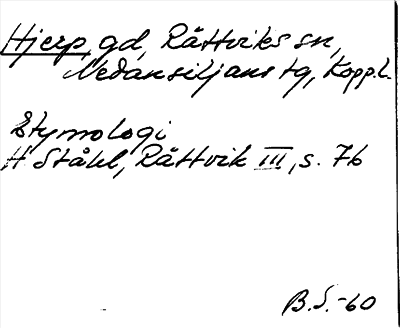 Hjerp, gd, Rättviks sn,
Nedansiljans tg, Kopp.l.
Etymologi
H Ståhl, Rättvik III, s. 76
B.S.-60